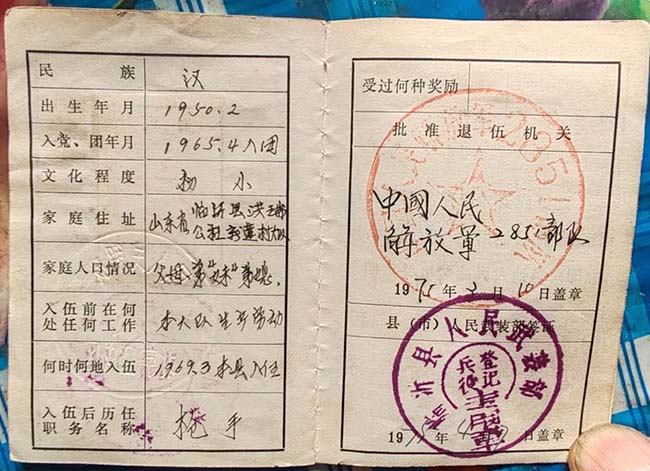 民族 汉
出生年月 1950.2
入党、团年月 1965.4入团
文化程度 初小
家庭住址 山东省临沂县洪
公社 村大队
家庭人口情况 父母、弟"妹"弟媳、
入伍前在何
处任何工作 本大队生产劳动
何时何地入伍 1969.3本县入伍
入伍后历任
职务名称 枪手
受过何种奖励
批准退伍机关
中國人民
解放軍 2851部队
1975年3月10日盖章
县(市)人民武装部签证
临沂县人民武装部
兵役登记
197 年 日盖章